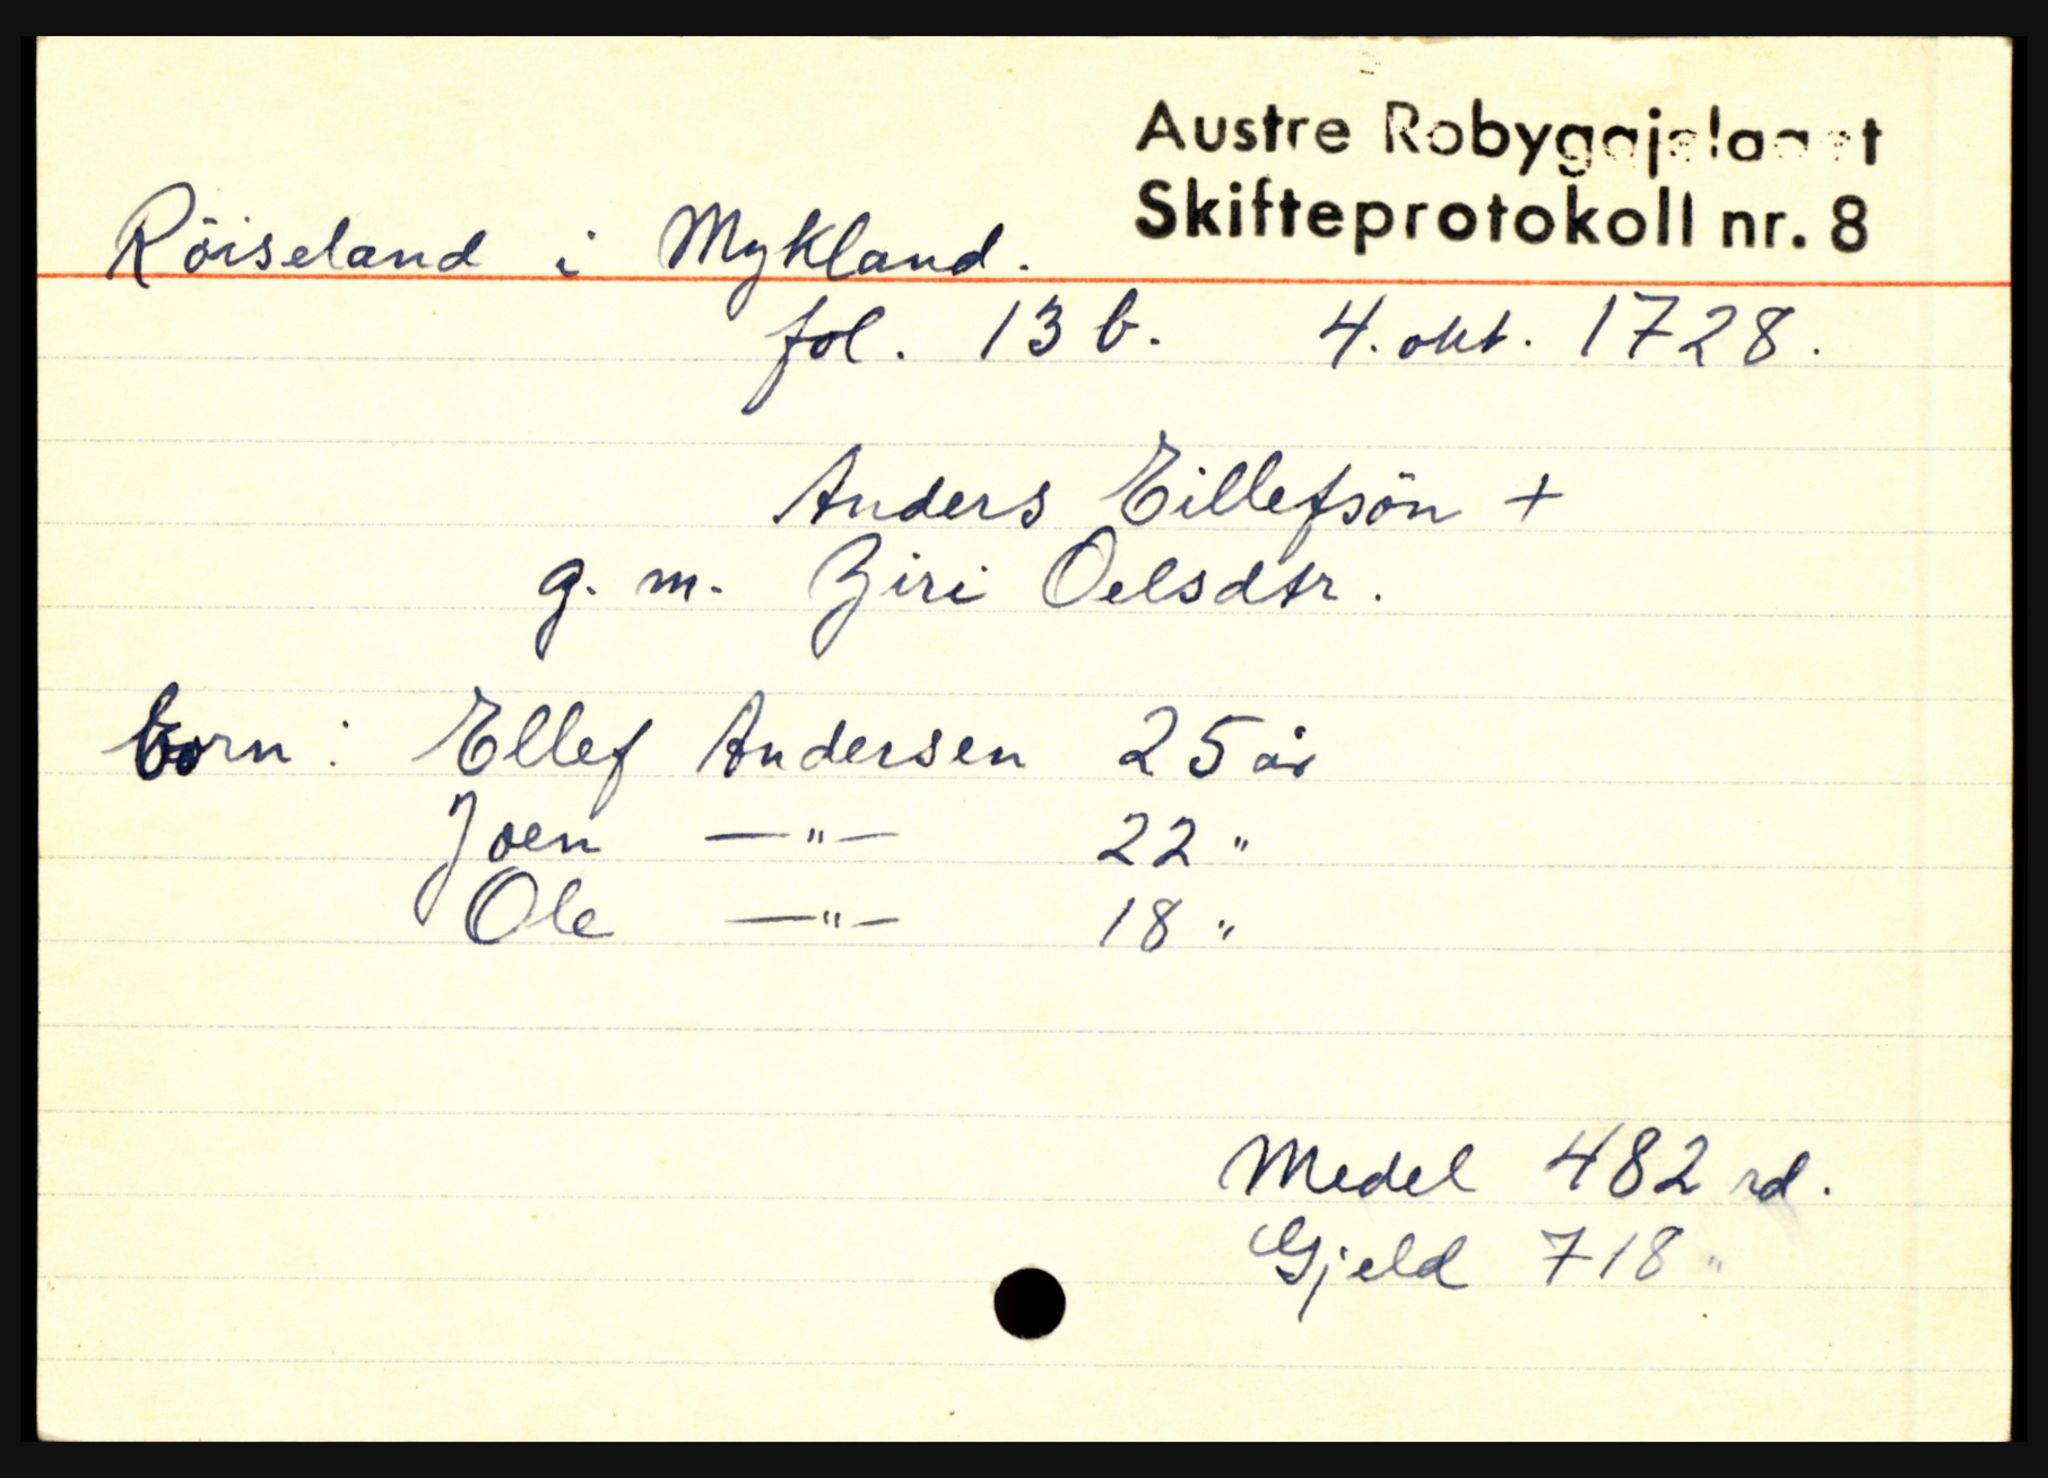 Austre Robyggjelaget
Skifteprotokoll nr. 8
Röiseland i Mykland.
fol. 13 b. 4. okt. 1728.
Anders Eillefsön +
g. m. Ziri Oelsdtr.
born: Ellef Andersen 25 år
Joen —"— 22 "
Ole —"— 18 "
Medel 482 rd.
Gjeld 718 "